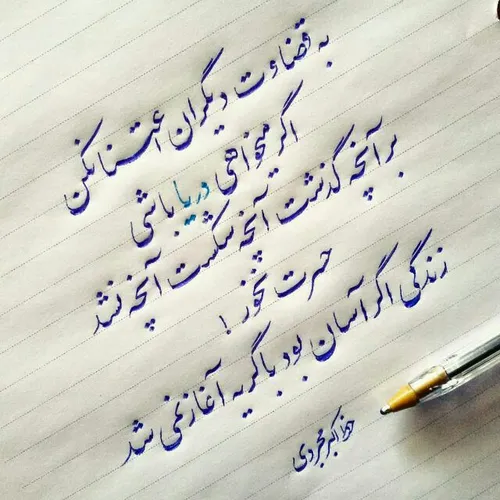 به قضاوت دیگران اعتنا نکن
اگر میخواهی دریا باشی
بر آنچه گذشت آنچه شکست آنچه نشد
حسرت نخور !
زندگی اگر آسان بود با گریه آغاز نمی شد
خط اکبر مجردی